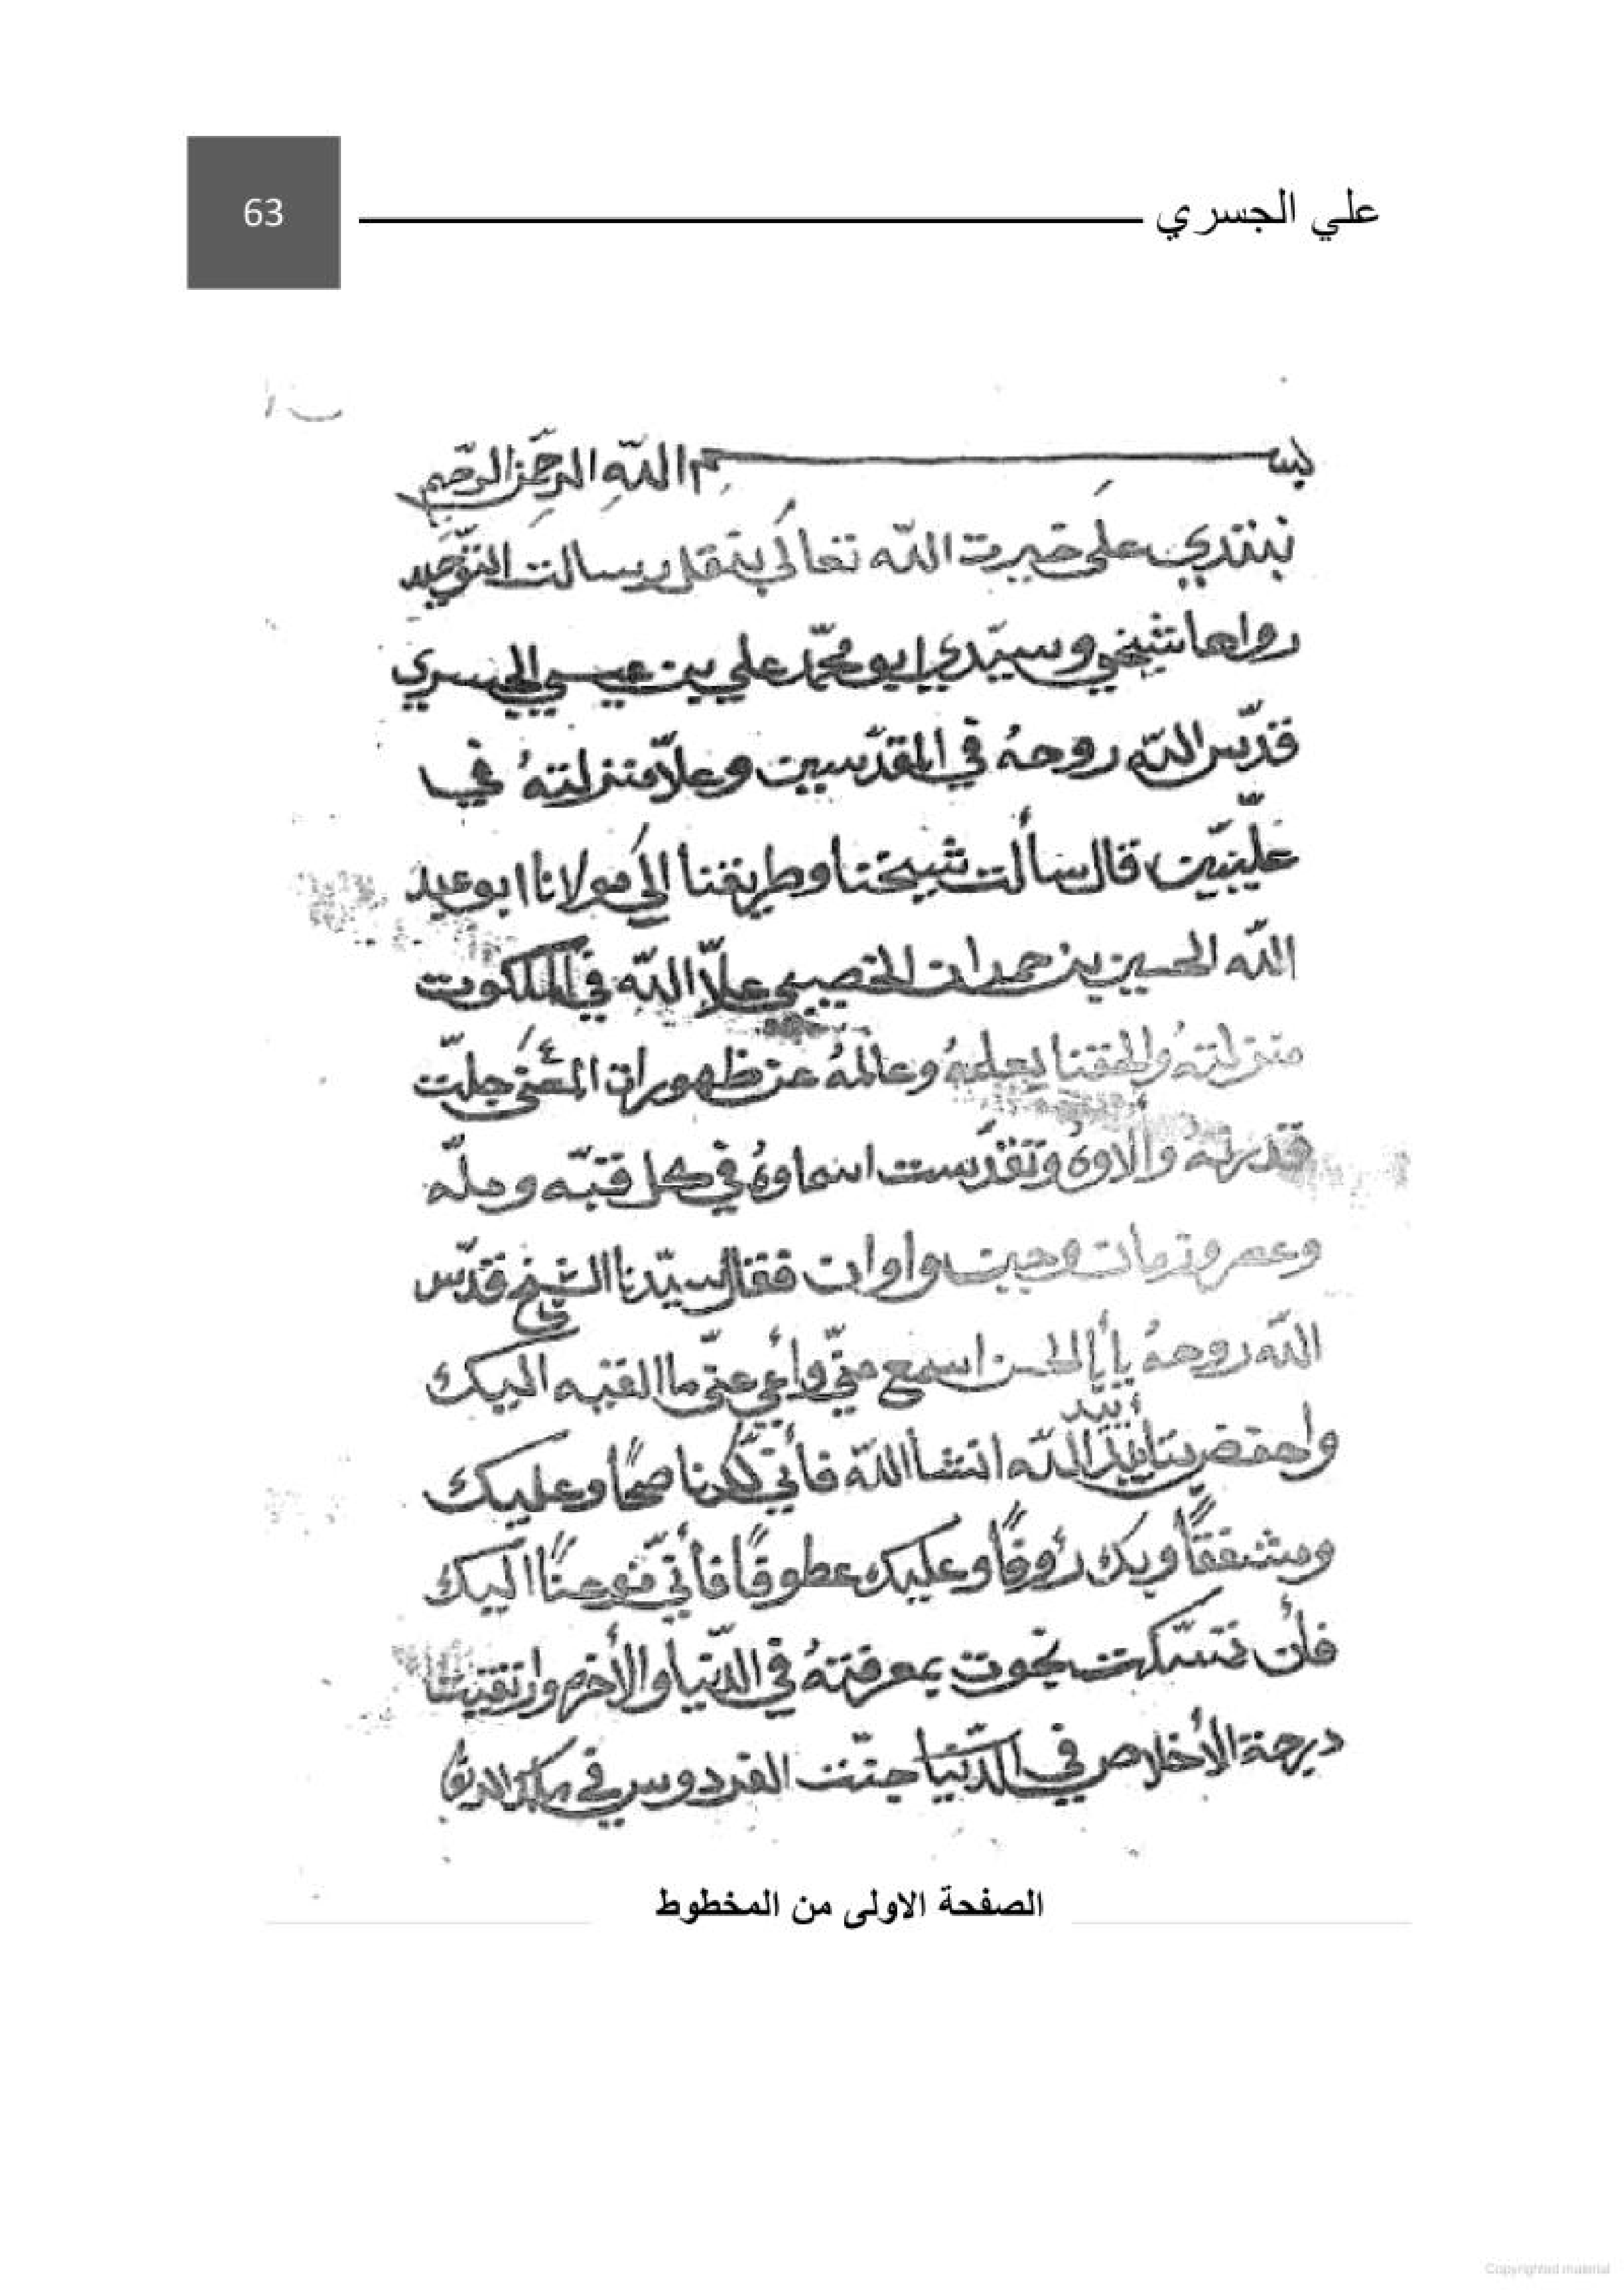 علي الجسري
63
بسم الله الرحمن الرحيم
نبتدي على خيرت الله تعالى بنقل رسالت التوحيد
رواها شيخي وسيّدي ابو محمّد علي بن عيسى الجسري
قدّس الله روحهُ في المقدّسين وعلّا منزلتهُ في
علّيّين قال سألت شيخنا وطريقنا إلى مولانا ابو عبد
الله الحسين بن حمدان الخصيبي علّا الله في الملكوت
منزلتهُ والحقنا بعلمهُ وعالمهُ عن ظهورات المعنى جلّت
قدرتهُ والاوهُ وتقدّست اسماوهُ في كل قبّه وملّه
وعصر وزمان وحين واوان فقال سيّدنا الشيخ قدّس
الله روحهُ يا أبا الحسن اسمع منّي وأعي عنّي ما القيه اليك
واحفض بتاييد الله انشا الله فأنّي لك ناصحاً وعليك
أييد
ومشفقاً وبك رؤوفاً وعليك عطوفاً فأنّي اليك
فأن تمسّكت نجوت بمعرفتهُ في الدّنيا والأخره وارتقيت
درجة الأخلاص في الدّنيا جنّت الفردوس في
الصفحة الاولى من المخطوط
Copyrighted material